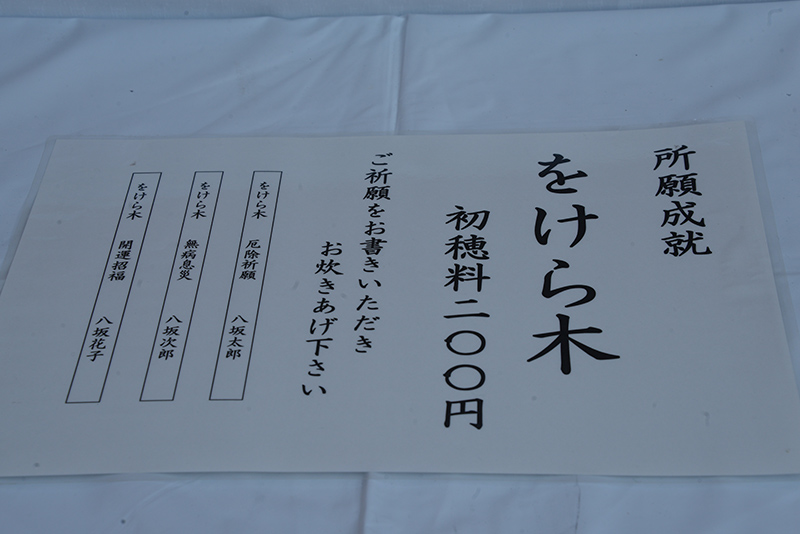 所願成就
をけら木
初穂料二〇〇円
ご祈願をお書きいただき
お炊きあげ下さい
をけら木 厄除祈願 八坂太郎
をけら木 無病息災 八坂次郎
をけら木 開運招福 八坂花子